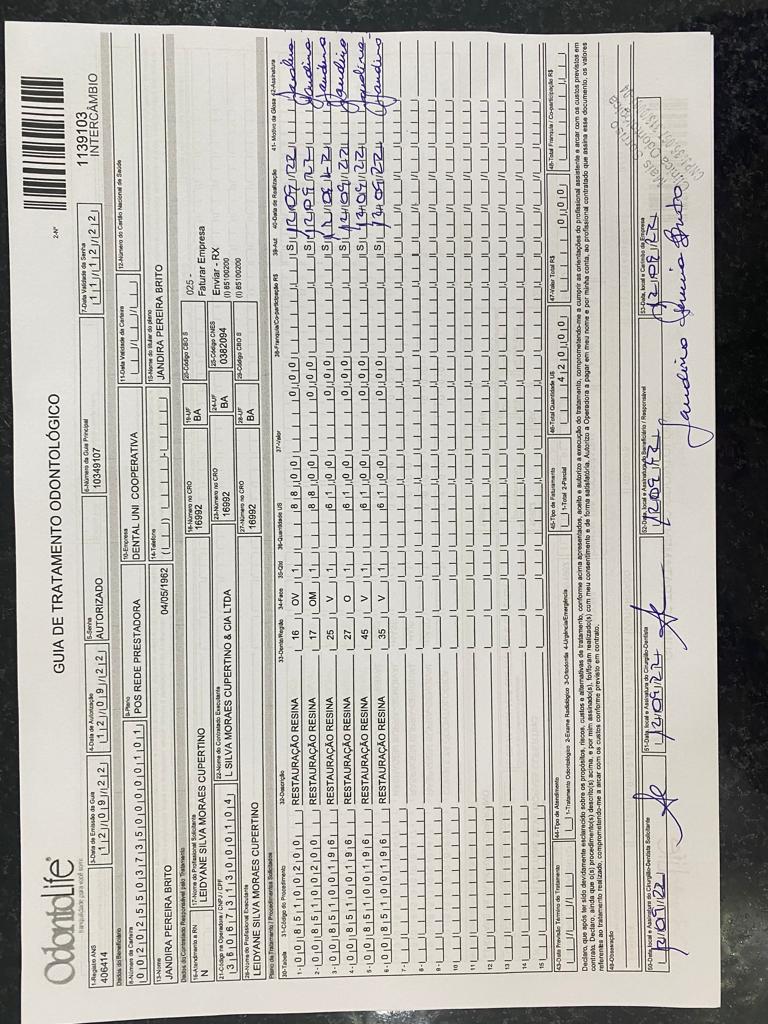 OdontoLife
tranquilidade para você sorrir
GUIA DE TRATAMENTO ODONTOLÓGICO
2-Nº
1139103
INTERCÂMBIO
1-Registro ANS
406414
3-Data de Emissão da Guia
12/09/22
4-Data de Autorização
12/09/22
5-Senha
AUTORIZADO
6-Número da Guia Principal
10349107
7-Data Validade da Senha
11/12/22
Dados do Beneficiário
8-Número da Carteira
00202550373500000101
9-Plano
POS REDE PRESTADORA
10-Empresa
DENTAL UNI COOPERATIVA
11-Data Validade da Carteira
12-Número do Cartão Nacional de Saúde
13-Nome
JANDIRA PEREIRA BRITO
04/05/1962
14-Telefone
15-Nome do titular do plano
JANDIRA PEREIRA BRITO
Dados do Contratado Responsável pelo Tratamento
16-Atendimento a RN
N
17-Nome do Profissional Solicitante
LEIDYANE SILVA MORAES CUPERTINO
18-Número no CRO
16992
19-UF
BA
20-Código CBO S
025 -
Faturar Empresa
21-Código na Operadora / CNPJ / CPF
36067313000104
22-Nome do Contratado Executante
L SILVA MORAES CUPERTINO & CIA LTDA
23-Número no CRO
16992
24-UF
BA
25-Código CNES
0382094
Enviar - RX
(I) 85100200
(I) 85100200
26-Nome do Profissional Executante
LEIDYANE SILVA MORAES CUPERTINO
27-Número no CRO
16992
28-UF
BA
29-Código CBO S
Plano de Tratamento / Procedimentos Solicitados
30-Tabela 31-Código do Procedimento 32-Descrição 33-Dente/Região 34-Face 35-Qtd 36-Quantidade US 37-Valor 38-Franquia/Co-participação R$ 39-Aut 40-Data de Realização 41- Motivo da Glosa 42-Assinatura
1- 00 85100200 RESTAURAÇÃO RESINA 16 OV 1 88,00 0,00 S 12/09/22 Jandira
2- 00 85100200 RESTAURAÇÃO RESINA 17 OM 1 88,00 0,00 S 12/09/22 Jandira
3- 00 85100196 RESTAURAÇÃO RESINA 25 V 1 61,00 0,00 S 12/09/22 Jandira
4- 00 85100196 RESTAURAÇÃO RESINA 27 O 1 61,00 0,00 S 12/09/22 Jandira
5- 00 85100196 RESTAURAÇÃO RESINA 45 V 1 61,00 0,00 S 12/09/22 Jandira
6- 00 85100196 RESTAURAÇÃO RESINA 35 V 1 61,00 0,00 S 12/09/22 Jandira
7-
8-
9-
10
11
12
13
14
15
43-Data Previsão Término do Tratamento
44-Tipo de Atendimento
1-Tratamento Odontológico 2-Exame Radiológico 3-Ortodontia 4-Urgência/Emergência
45-Tipo de Faturamento
1-Total 2-Parcial
46-Total Quantidade US
420,00
47-Valor Total R$
0,00
48-Total Franquia / Co-participação R$
Declaro, que após ter sido devidamente esclarecido sobre os propósitos, riscos, custos e alternativas de tratamento, conforme acima apresentados, aceito e autorizo a execução do tratamento, comprometendo-me a cumprir as orientações do profissional assistente e arcar com os custos previstos em
contrato. Declaro, ainda que o(s) procedimento(s) descrito(s) acima, e por mim assinado(s), foi/foram realizado(s) com meu consentimento e de forma satisfatória. Autorizo a Operadora a pagar em meu nome e por minha conta, ao profissional contratado que assina esse documento, os valores
referentes ao tratamento realizado, comprometendo-me a arcar com os custos conforme previsto em contrato.
49-Observação
50-Data, local e Assinatura do Cirurgião-Dentista Solicitante
12/09/22
51-Data, local e Assinatura do Cirurgião-Dentista
12/09/22
52-Data, local e Assinatura do Beneficiário / Responsável
12/09/22
53-Data, local e Carimbo da Empresa
12/09/22
Jandira Pereira Brito